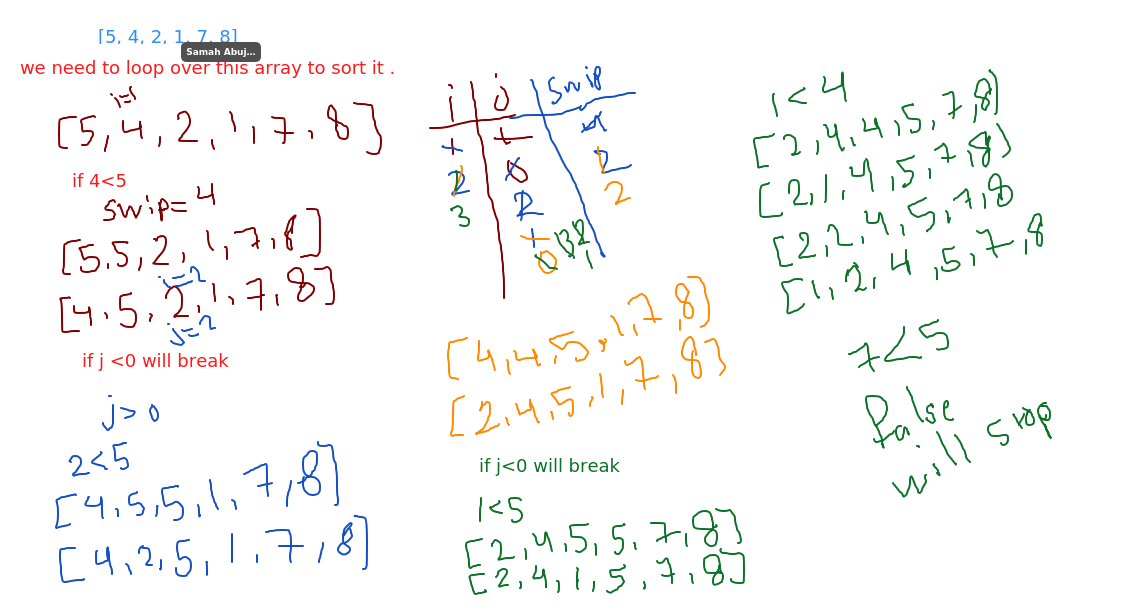 [5, 4, 2, 1, 7, 8]
Samah Abuj...
we need to loop over this array to sort it .
i=1
[5, 4, 2, 1, 7, 8]
if 4<5
swip= 4
[5,5,2, 1,7,8]
i=2
[4,5,2,1,7,8]
j=2
if j <0 will break
j> 0
2<5
[4,5,5,1,7,8]
[4,2,5,1,7,8]
i j swip
1 1 4
2 0 2
3 2 2
1
0
3 2
1
[4,4,5,1,7,8]
[2,4,5,1,7,8]
if j<0 will break
1<5
[2,4,5,5,7,8]
[2,4,1,5,7,8]
1<4
[2,4,4,5,7,8]
[2,1,4,5,7,8]
[2,2,4,5,7,8
[1,2,4,5,7,8
7<5
false
will stop